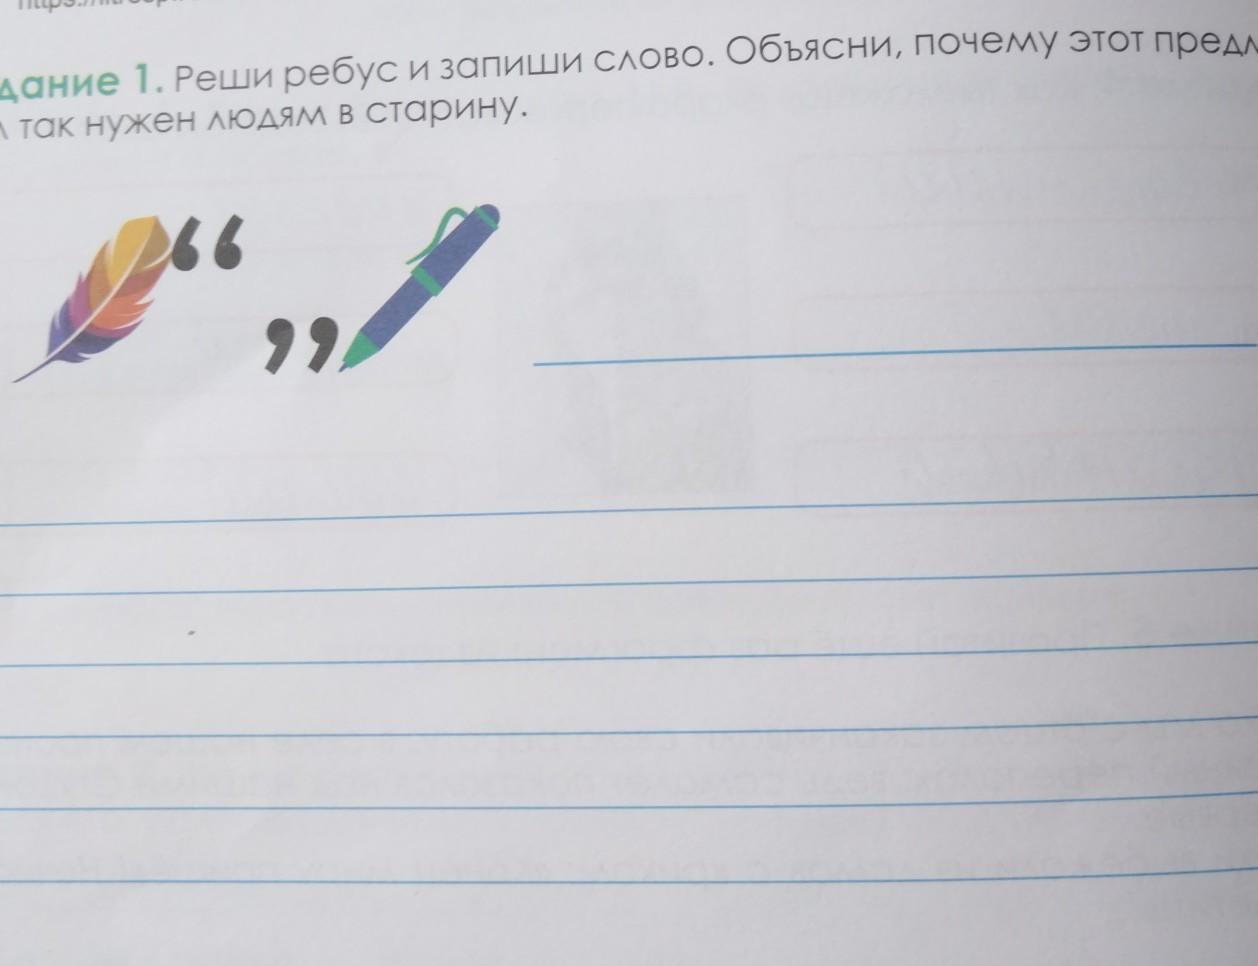 дание 1. Реши ребус и запиши слово. Объясни, почему этот предм
л так нужен людям в старину.
“
„